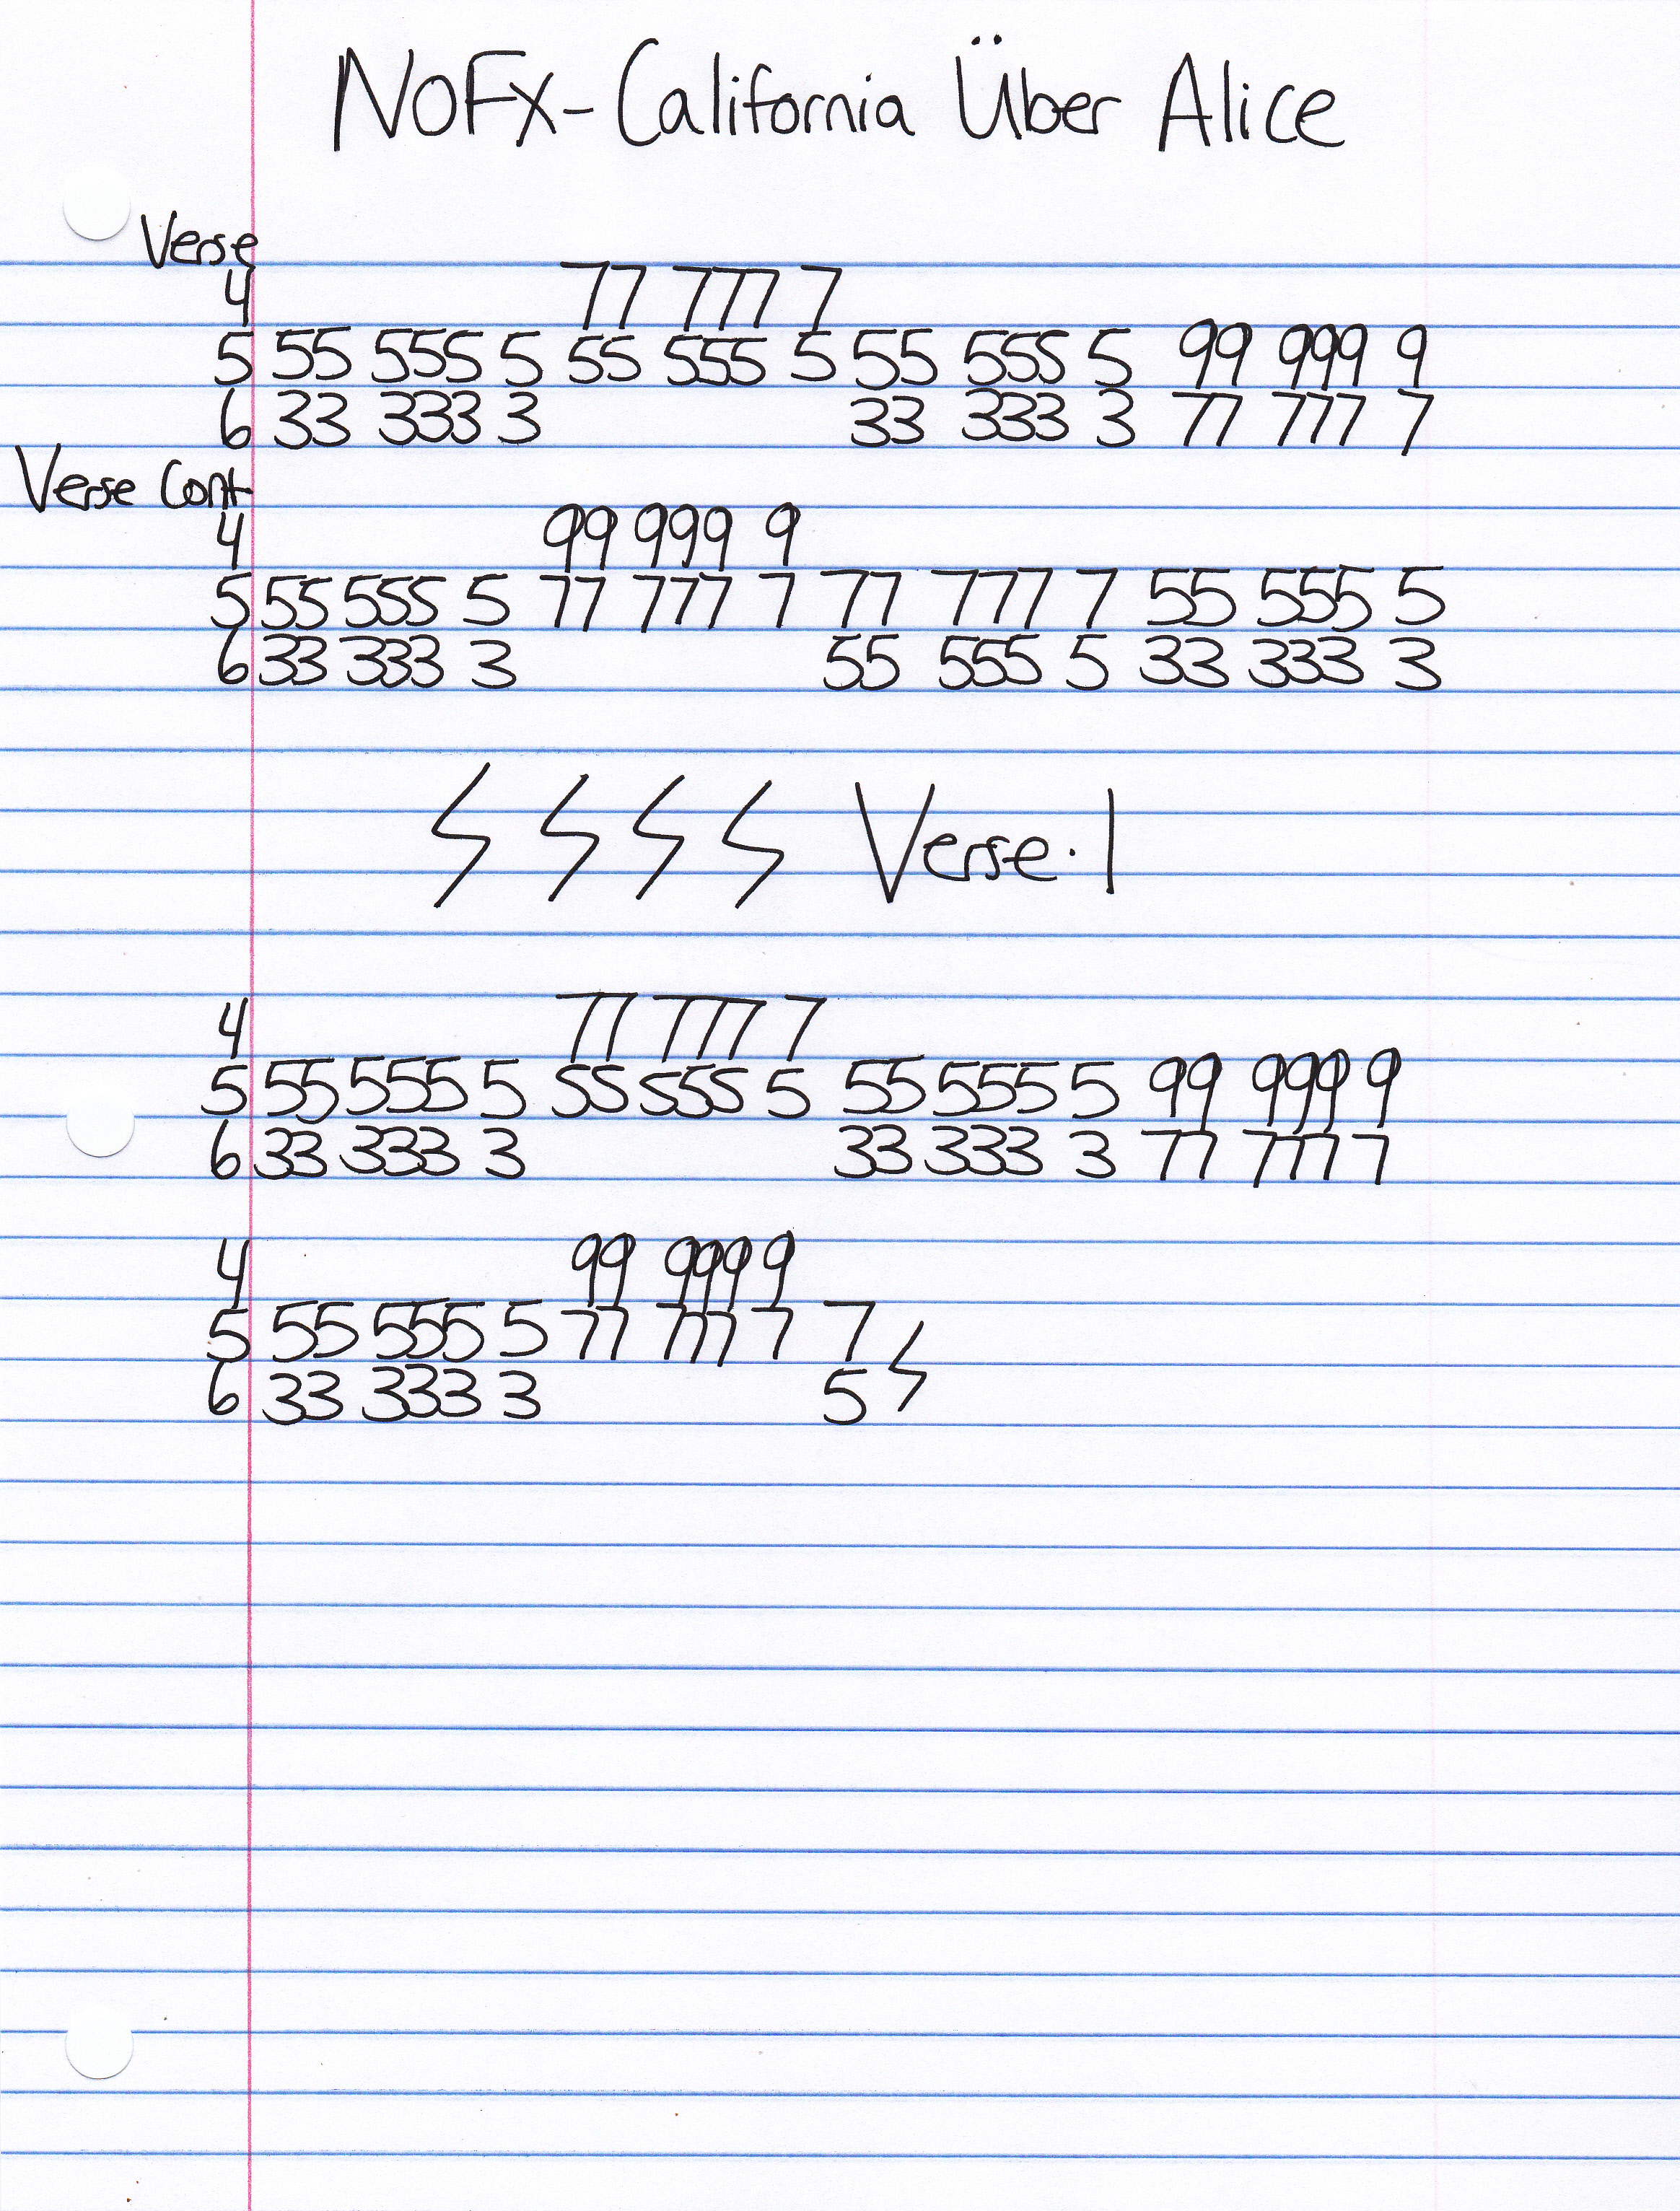 NOFX - California Über Alice
Verse
4 77 777 7
5 55 555 5 55 555 5 55 555 5 99 999 9
6 33 333 3 33 333 3 77 777 7
Verse Cont
4 99 999 9
5 55 555 5 77 777 7 77 777 7 55 555 5
6 33 333 3 55 555 5 33 333 3
Verse. 1
4 77 777 7
5 55 555 5 55 555 5 55 555 5 99 999 9
6 33 333 3 33 333 3 77 777 7
4 99 999 9
5 55 555 5 77 777 7 7
6 33 333 3 5